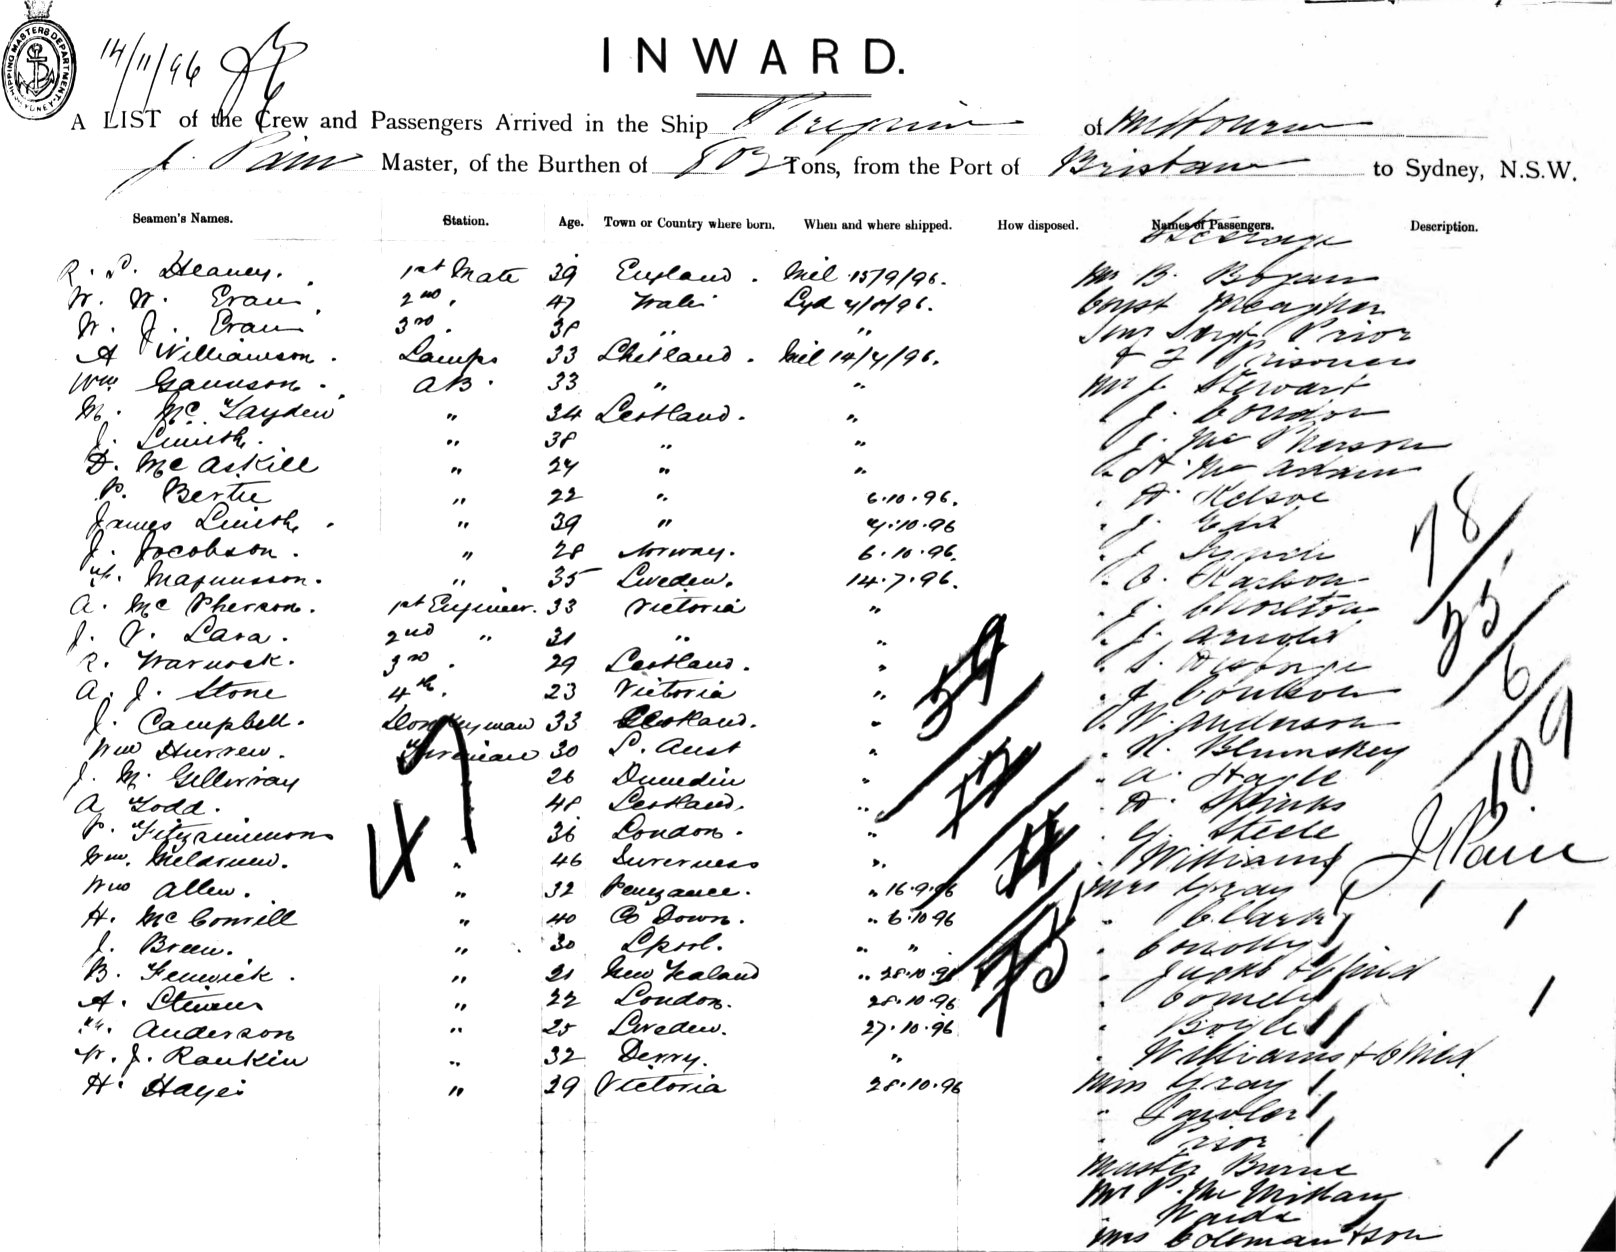 SHIPPING MASTERS DEPARTMENT SYDNEY
14/11/96
INWARD.
A LIST of the Crew and Passengers Arrived in the Ship Peregrine of Melbourne
J. Pain Master, of the Burthen of Tons, from the Port of Brisbane to Sydney, N.S.W.
Seamen's Names. Station. Age. Town or Country where born. When and where shipped. How disposed. Names of Passengers. Description.
Steerage
1st Mate 39 England . Mel 15/9/96. Mr B. Bogan
W. W. Evans 2nd " 47 Wales Syd Const Meagher
W. J. Evans 3rd " 38 " " Senr Sergt Prior
A Williamson . Lamps 33 Shetland . Mel 14/7/96. & 2 Prisoners
Wm Gaunson . AB . 33 " " Mr J. Stewart
M. Mc Fayden " 34 Scotland . " " J. Condon
J. Smith . " 38 " " " J. Mc Pherson
D. Mc Askill " 24 " " " A. Mc Adam
P. Bertie " 22 " 6.10.96. " A. Kelsoe
James Smith . " 39 " 7.10.96 " J.
J. Jacobson . " 28 Norway . 6.10.96. " J. Lynch
Magnusson . " 35 Sweden . 14.7.96. "
A. Mc Pherson . 1st Engineer. 33 Victoria " " J. Charlton
J. V. Lara . 2nd " 31 " " " J. Arnold
R. Warnock . 3rd . 29 Scotland . " "
A. J. Stone 4th . 23 Victoria " " J. Coulson
J. Campbell . Donkeyman 33 Scotland . " " W. Anderson
Wm Fireman 30 S. Aust " " Blumskey
J. M. Gillivray 26 Dunedin " " A.
A Todd . 48 Scotland . " " Spinks
P. Fitzsimmons 36 London . " " Steele
Wm. Meldrum . " 46 Inverness " " Williams
Wm Allen . " 32 Penzance . " 16.9.96 Mrs Gray
H. Mc Convill " 40 Co Down . " 6.10.96 " Clark
J. Breen . " 30 Lpool . " " " Connolly
B. Fenwick . " 21 New Zealand " 28.10.96 " & Child
A. Stevens " 22 London . 28.10.96 "
Anderson " 25 Sweden . 27.10.96 " Boyle
W. J. Rankin " 32 Derry . " " Williams & Child
H. Hayes " 29 Victoria 28.10.96 Miss Gray
" Fowler
" Prior
Master Burne
Mr P. Mc
Mrs Coleman & son
47
59
12
4
75
78
25
6
109
J Pain